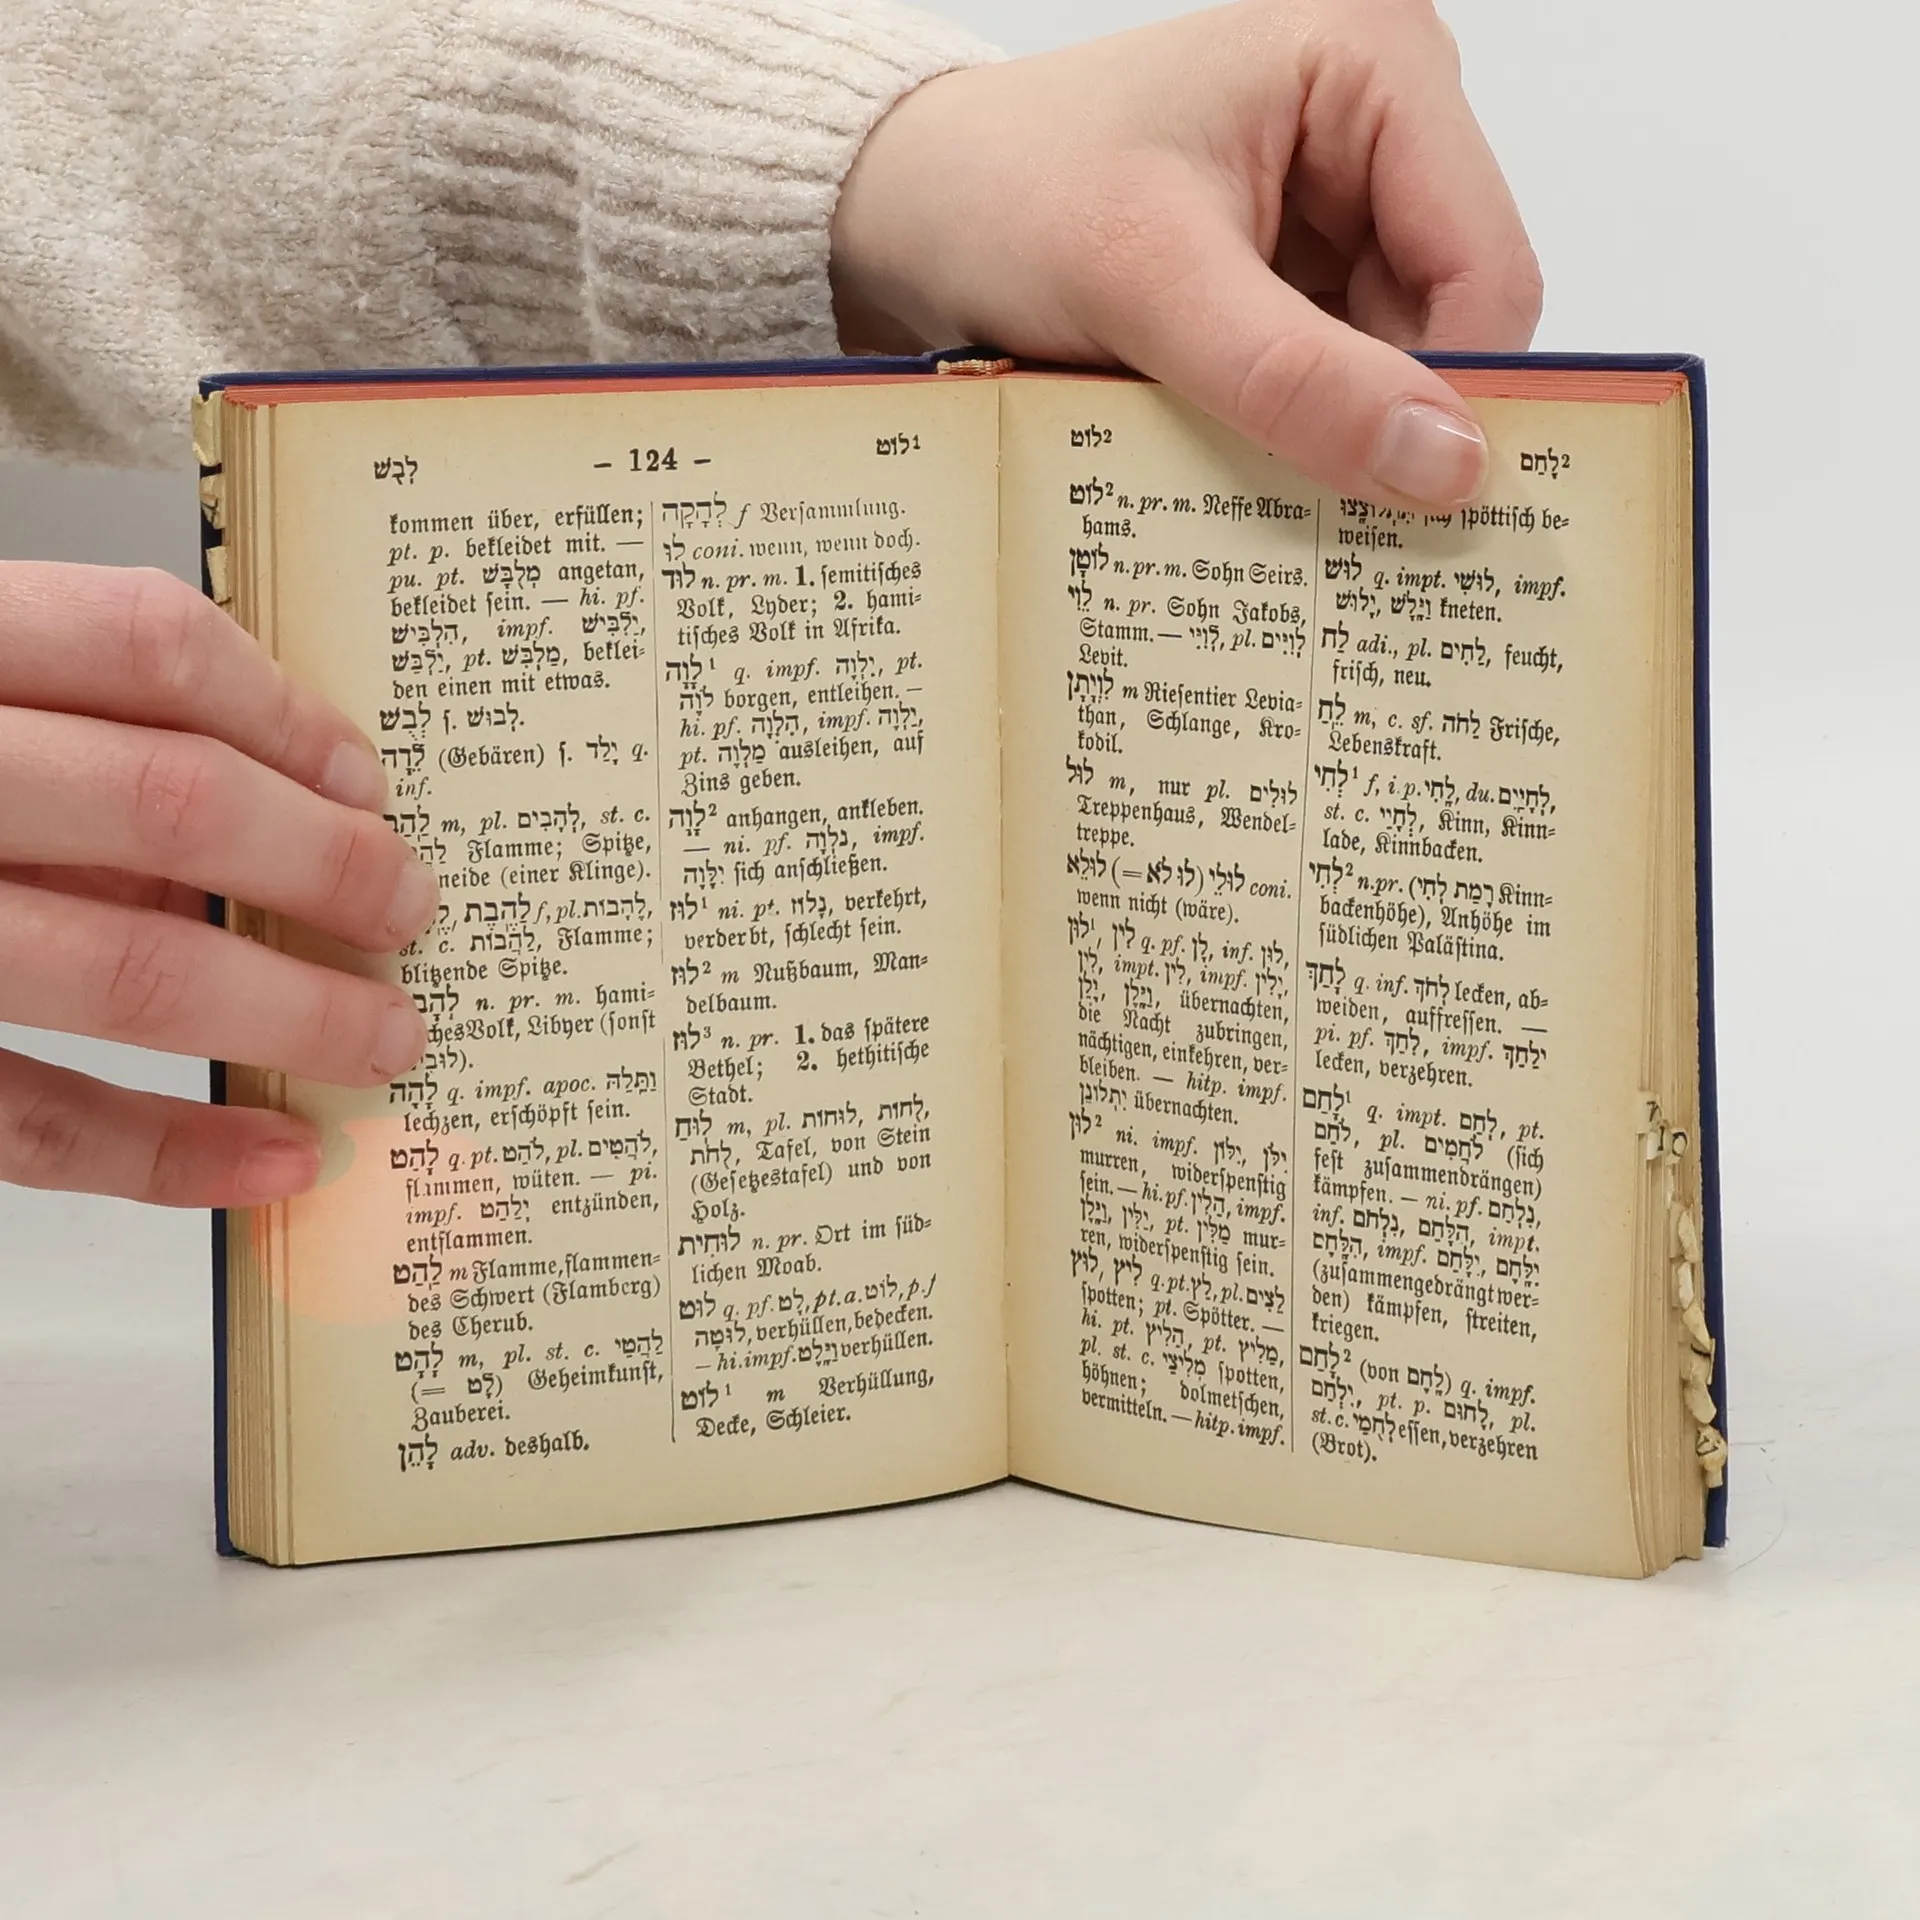 לָבַשׁ
— 124 —
לוֹט¹
kommen über, erfüllen;
pt. p. bekleidet mit. —
pu. pt. מְלֻבָּשׁ angetan,
bekleidet sein. — hi. pf.
הִלְבִּישׁ, impf. יַלְבִּישׁ,
יַלְבֵּשׁ, pt. מַלְבִּשׁ, beklei-
den einen mit etwas.
לְבֻשׁ ſ. לְבוּשׁ.
לֵדָה (Gebären) ſ. יָלַד q.
inf.
לַהַב m, pl. לְהָבִים, st. c.
Flamme; Spitze,
neide (einer Klinge).
לַהֶבֶת f, pl. לֶהָבוֹת,
st. c. לַהֲבוֹת, Flamme;
blitzende Spitze.
n. pr. m. hami-
ches Volk, Libyer (ſonſt
).
לָהָה q. impf. apoc. וַתֵּלַהּ
lechzen, erſchöpft ſein.
לָהַט q. pt. לֹהֵט, pl. לֹהֲטִים,
flammen, wüten. — pi.
impf. יְלַהֵט entzünden,
entflammen.
לַהַט m Flamme, flammen-
des Schwert (Flamberg)
des Cherub.
לָהָט m, pl. st. c. לַהֲטֵי
(= לָט) Geheimkunſt,
Zauberei.
לָהֵן adv. deshalb.
לְהָקָה f Verſammlung.
לוּ coni. wenn, wenn doch.
לוּד n. pr. m. 1. ſemitiſches
Volk, Lyder; 2. hami-
tiſches Volk in Afrika.
לָוָה¹ q. impf. יִלְוֶה, pt.
לֹוֶה borgen, entleihen. —
hi. pf. הִלְוָה, impf. יַלְוֶה,
pt. מַלְוֶה ausleihen, auf
Zins geben.
לָוָה² anhangen, ankleben.
— ni. pf. נִלְוָה, impf.
יִלָּוֶה ſich anſchließen.
לוּז¹ ni. pt. נָלוֹז, verkehrt,
verderbt, ſchlecht ſein.
לוּז² m Nußbaum, Man-
delbaum.
לוּז³ n. pr. 1. das ſpätere
Bethel; 2. hethitiſche
Stadt.
לוּחַ m, pl. לוּחוֹת, לֻחוֹת,
לֻחֹת, Tafel, von Stein
(Geſetzestafel) und von
Holz.
לוּחִית n. pr. Ort im ſüd-
lichen Moab.
לוּט q. pf. לָט, pt. a. לוֹט, p. f
לוּטָה, verhüllen, bedecken.
— hi. impf. וַיָּלֶט verhüllen.
לוֹט¹ m Verhüllung,
Decke, Schleier.
לוֹט²
לָחַם²
לוֹט² n. pr. m. Neffe Abra-
hams.
לוֹטָן n. pr. m. Sohn Seirs.
לֵוִי n. pr. Sohn Jakobs,
Stamm. — לֵוִיִּי, pl. לְוִיִּים
Levit.
לִוְיָתָן m Rieſentier Levia-
than, Schlange, Kro-
kodil.
לוּל m, nur pl. לוּלִים
Treppenhaus, Wendel-
treppe.
לוּלֵא (= לוּ לֹא) לוּלֵי coni.
wenn nicht (wäre).
לוּן¹, לִין q. pf. לָן, inf. לוּן,
לִין, impt. לִין, impf. יָלִין,
יָלֶן, וַיָּלֶן, übernachten,
die Nacht zubringen,
nächtigen, einkehren, ver-
bleiben. — hitp. impf.
יִתְלוֹנָן übernachten.
לוּן² ni. impf. יִלּוֹן, יִלֹּן
murren, widerſpenſtig
ſein. — hi. pf. הִלִּין, impf.
יַלִּין, וַיָּלֶן, pt. מַלִּין mur-
ren, widerſpenſtig ſein.
לוּץ, לִיץ q. pt. לֵץ, pl. לֵצִים
ſpotten; pt. Spötter. —
hi. pt. הֵלִיץ, pt. מֵלִיץ,
pl. st. c. מְלִיצֵי ſpotten,
höhnen; dolmetſchen,
vermitteln. — hitp. impf.
ſpöttiſch be-
weiſen.
לוּשׁ q. impt. לוּשִׁי, impf.
יָלוּשׁ, וַיָּלָשׁ kneten.
לַח adi., pl. לַחִים, feucht,
friſch, neu.
לֵחַ m, c. sf. לֵחֹה Friſche,
Lebenskraft.
לְחִי¹ f, i. p. לֶחִי, du. לְחָיַיִם,
st. c. לְחָיֵי, Kinn, Kinn-
lade, Kinnbacken.
לְחִי² n. pr. (רָמַת לְחִי Kinn-
backenhöhe), Anhöhe im
ſüdlichen Paläſtina.
לָחַךְ q. inf. לְחֹךְ lecken, ab-
weiden, auffreſſen. —
pi. pf. לִחַךְ, impf. יְלַחֵךְ
lecken, verzehren.
לָחַם¹ q. impt. לְחַם, pt.
לֹחֵם, pl. לֹחֲמִים (ſich
feſt zuſammendrängen)
kämpfen. — ni. pf. נִלְחַם,
inf. נִלְחֹם, הִלָּחֵם, impt.
הִלָּחֶם, impf. יִלָּחֵם, יִלָּחֶם
(zuſammengedrängt wer-
den) kämpfen, ſtreiten,
kriegen.
לָחַם² (von לֶחֶם) q. impf.
יִלְחַם, pt. p. לָחוּם, pl.
st. c. לְחֻמֵי eſſen, verzehren
(Brot).